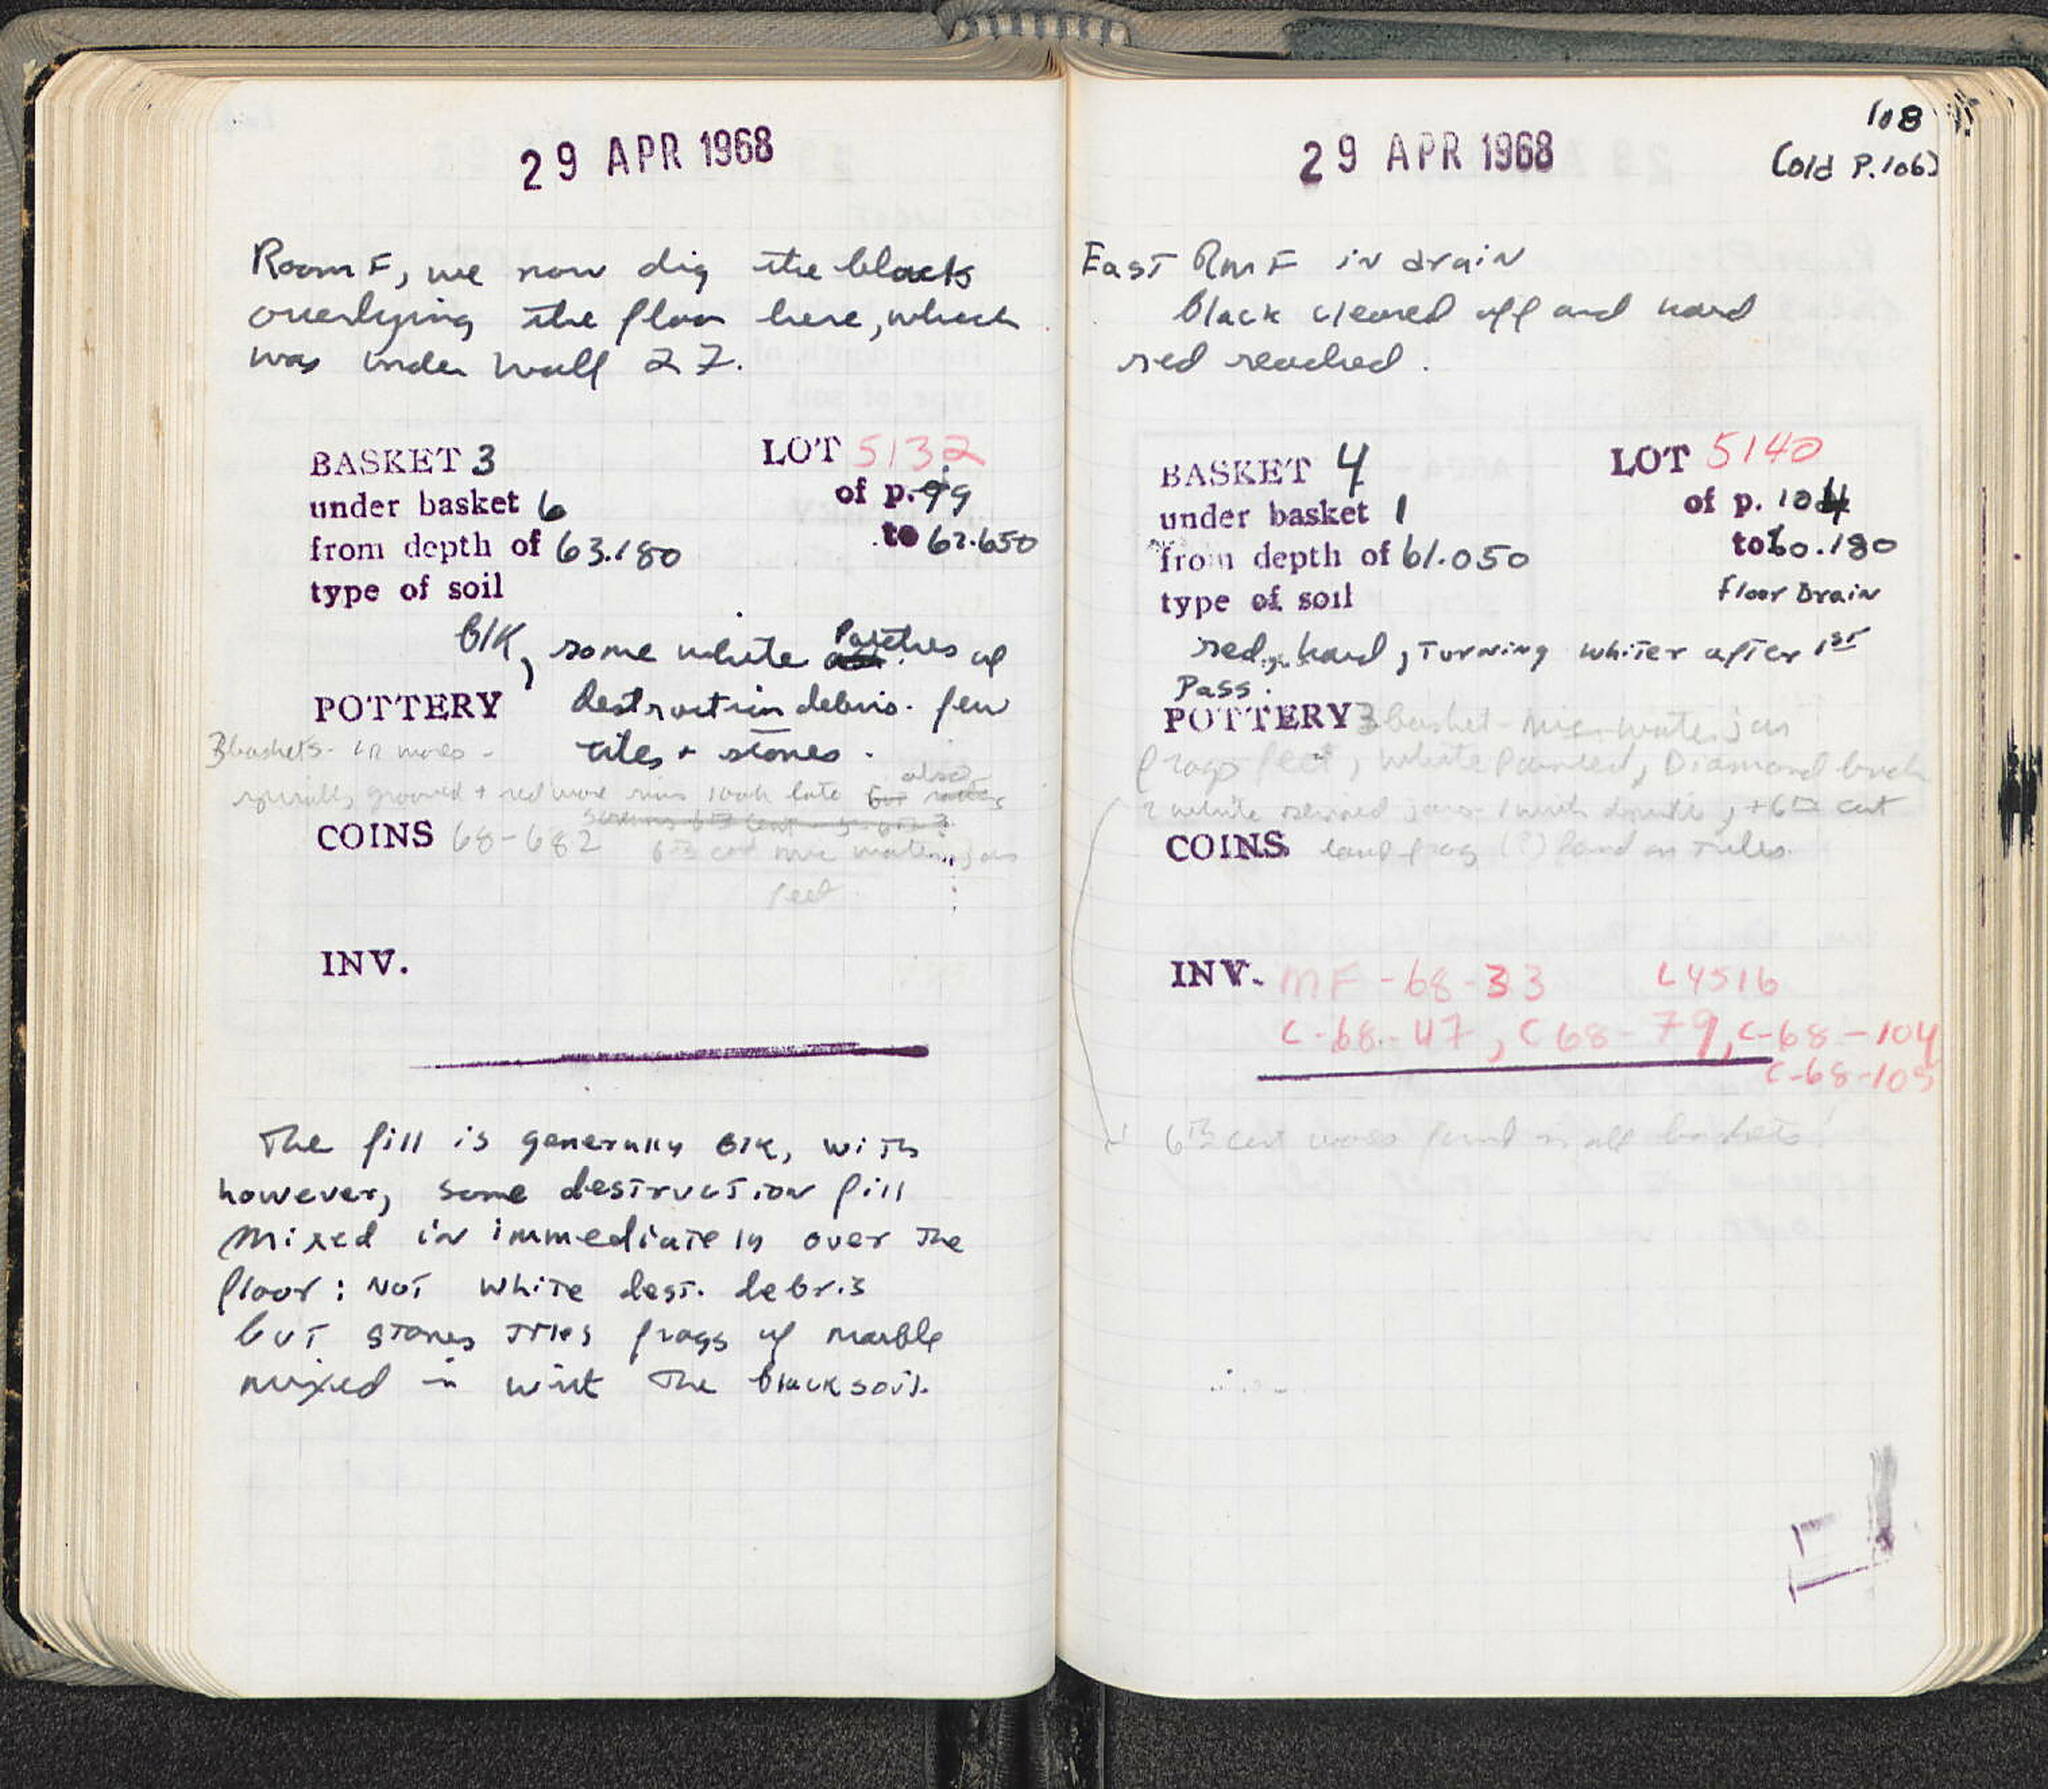 29 APR 1968
Room F, we now dig the black
overlying the floor here, which
was under wall 27.
BASKET 3 LOT 5132
under basket 6 of p. 99
from depth of 63.180 to 62.650
type of soil
blk, some white Patches of
POTTERY destruction debris. few
3 baskets - tiles + stones.
spirally grooved + red ware rims look late also
COINS 68-682
6th cent mic water jar
feet
INV.
The fill is generally blk, with
however, some destruction fill
Mixed in immediately over the
floor: NOT white dest. debris
but stones tiles frags of marble
mixed in with the black soil.
108
(old P.106)
29 APR 1968
East Rm F in drain
black cleared off and hard
red reached.
BASKET 4 LOT 5140
under basket 1 of p. 104
from depth of 61.050 to 60.180
type of soil Floor Drain
red, hard, turning whiter after 1st
Pass.
POTTERY 3 basket - mic. water jar
frags feet, white Painted, Diamond
2 white jars 1 with , + 6th cent
COINS lamp frag (?) found on tiles.
INV. MF-68-33 L4516
C-68-47, C68-79, C-68-104
C-68-105
6th cent found in all baskets!